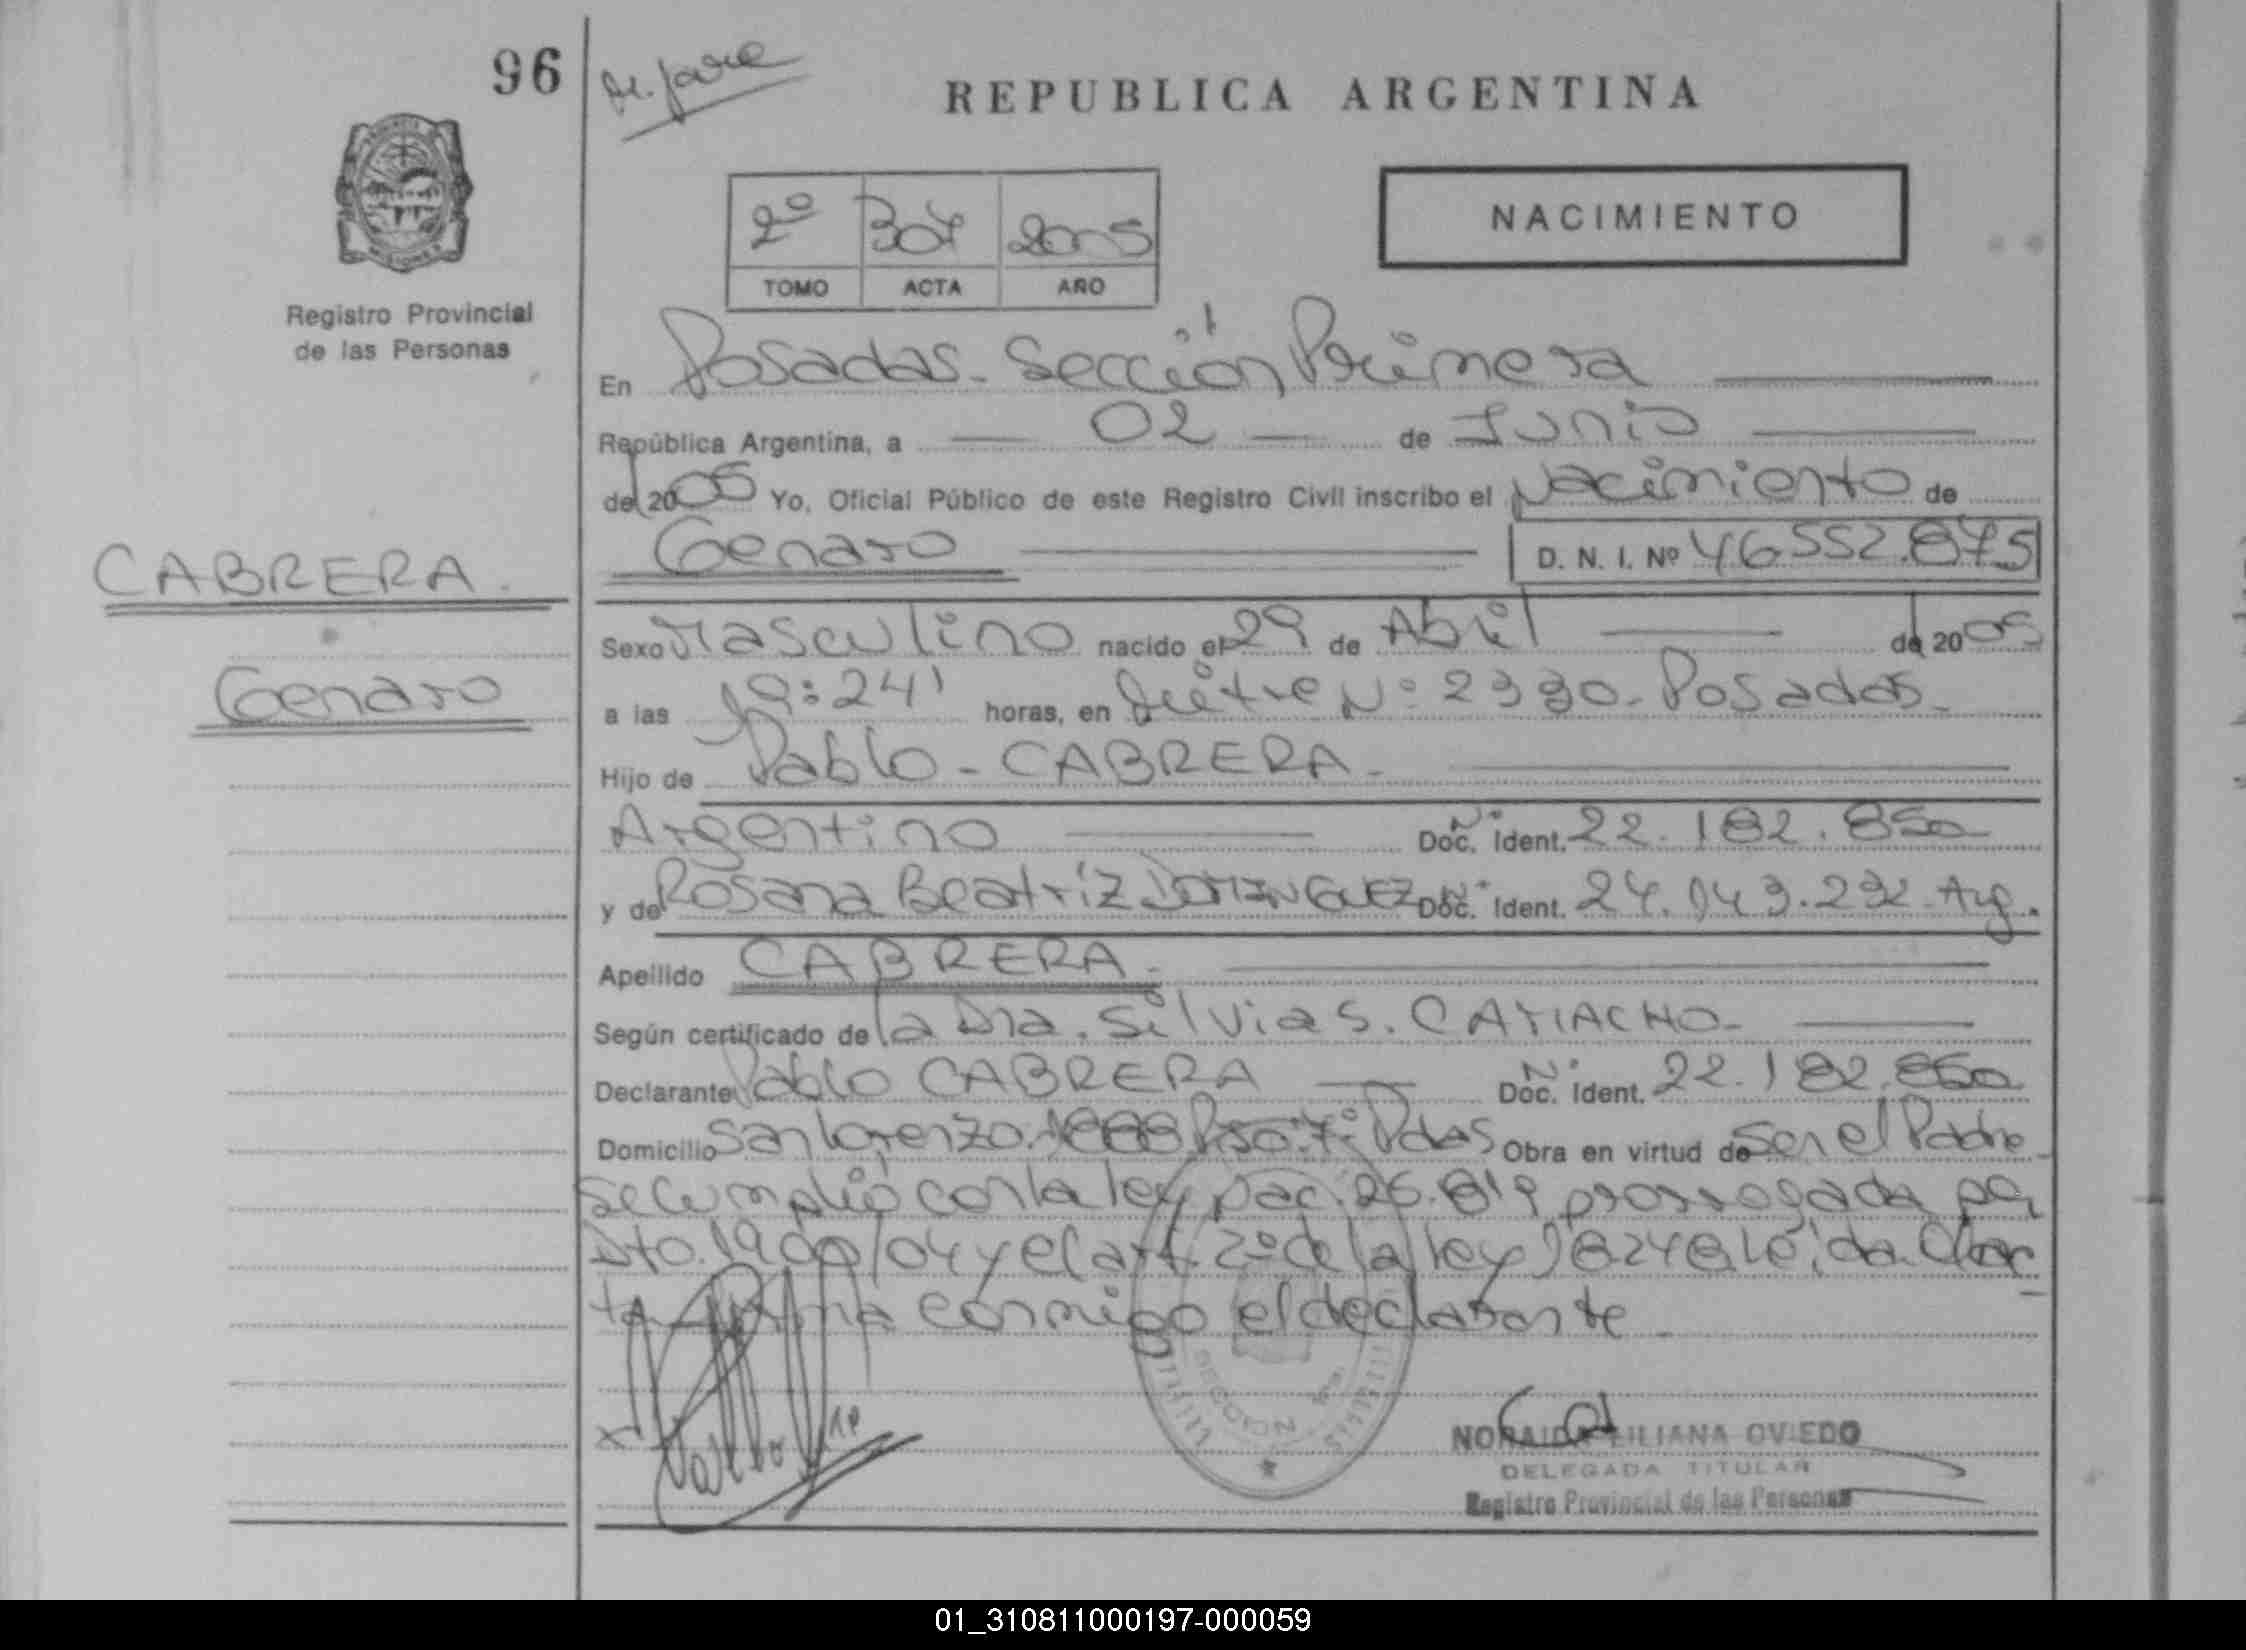 96
REPUBLICA ARGENTINA
NACIMIENTO
2º 307 2005
TOMO ACTA AÑO
Registro Provincial
de las Personas
En Posadas - Sección Primera
República Argentina, a 02 de Junio
del 2005 Yo, Oficial Público de este Registro Civil inscribo el Nacimiento de
Genaro D. N. I. Nº 46.552.875
CABRERA.
Genaro
Sexo Masculino nacido el 29 de Abril del 2005
a las 19:24' horas, en Nº 2330 - Posadas -
Hijo de Pablo - CABRERA -
Argentino Nº Doc. Ident. 22.182.850
y de Rosana Beatriz DOMINGUEZ Nº Doc. Ident. 24.143.232 - Arg.
Apellido CABRERA -
Según certificado de la Dra. Silvia S. CAMACHO -
Declarante Pablo CABRERA Nº Doc. Ident. 22.182.850
Domicilio San Lorenzo Piso 7º Pdas Obra en virtud de Ser el Padre -
Se cumplió con la ley Nac. 25.819 prorrogada por
Dto. 1900/04 y el art. 2º de la ley 18248 Leída el Ac-
ta firma conmigo el declarante -
SECCION 1ra.
NORAIDA LILIANA OVIEDO
DELEGADA TITULAR
Registro Provincial de las Personas
01_310811000197-000059